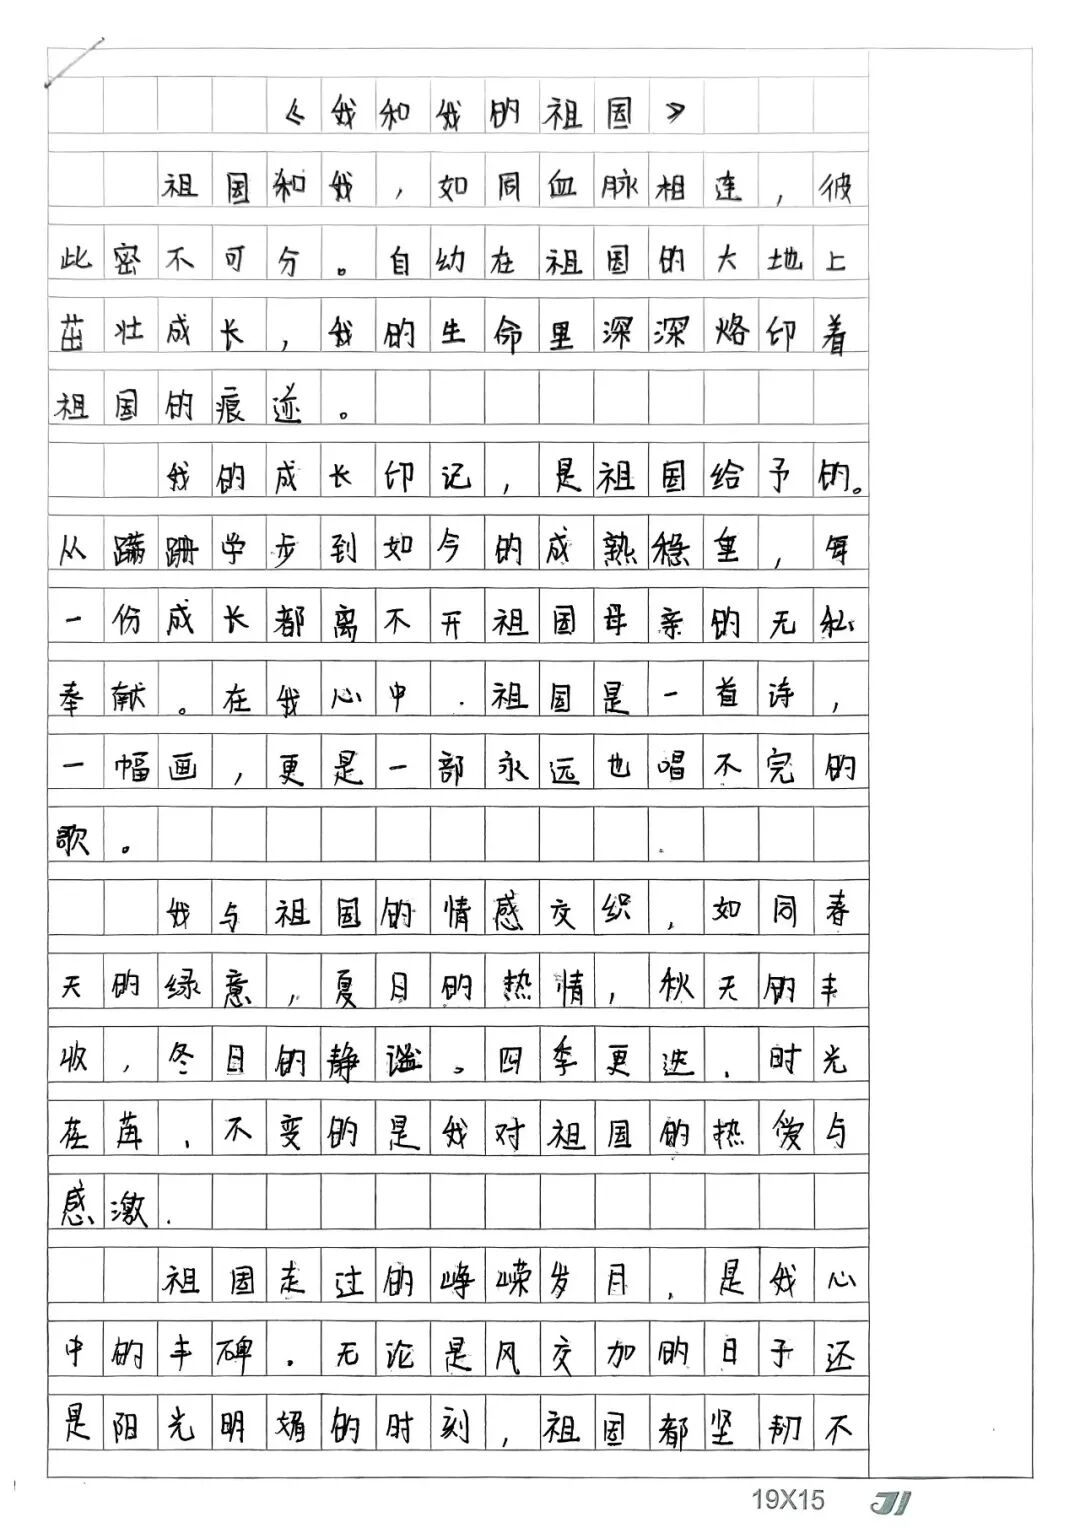 《我和我的祖国》
祖国和我，如同血脉相连，彼
此密不可分。自幼在祖国的大地上
茁壮成长，我的生命里深深烙印着
祖国的痕迹。
我的成长印记，是祖国给予的。
从蹒跚学步到如今的成熟稳重，每
一份成长都离不开祖国母亲的无私
奉献。在我心中．祖国是一首诗，
一幅画，更是一部永远也唱不完的
歌。
我与祖国的情感交织，如同春
天的绿意，夏日的热情，秋天的丰
收，冬日的静谧。四季更迭．时光
在苒，不变的是我对祖国的热爱与
感激．
祖国走过的峥嵘岁月，是我心
中的丰碑．无论是风交加的日子还
是阳光明媚的时刻，祖国都坚韧不
19X15